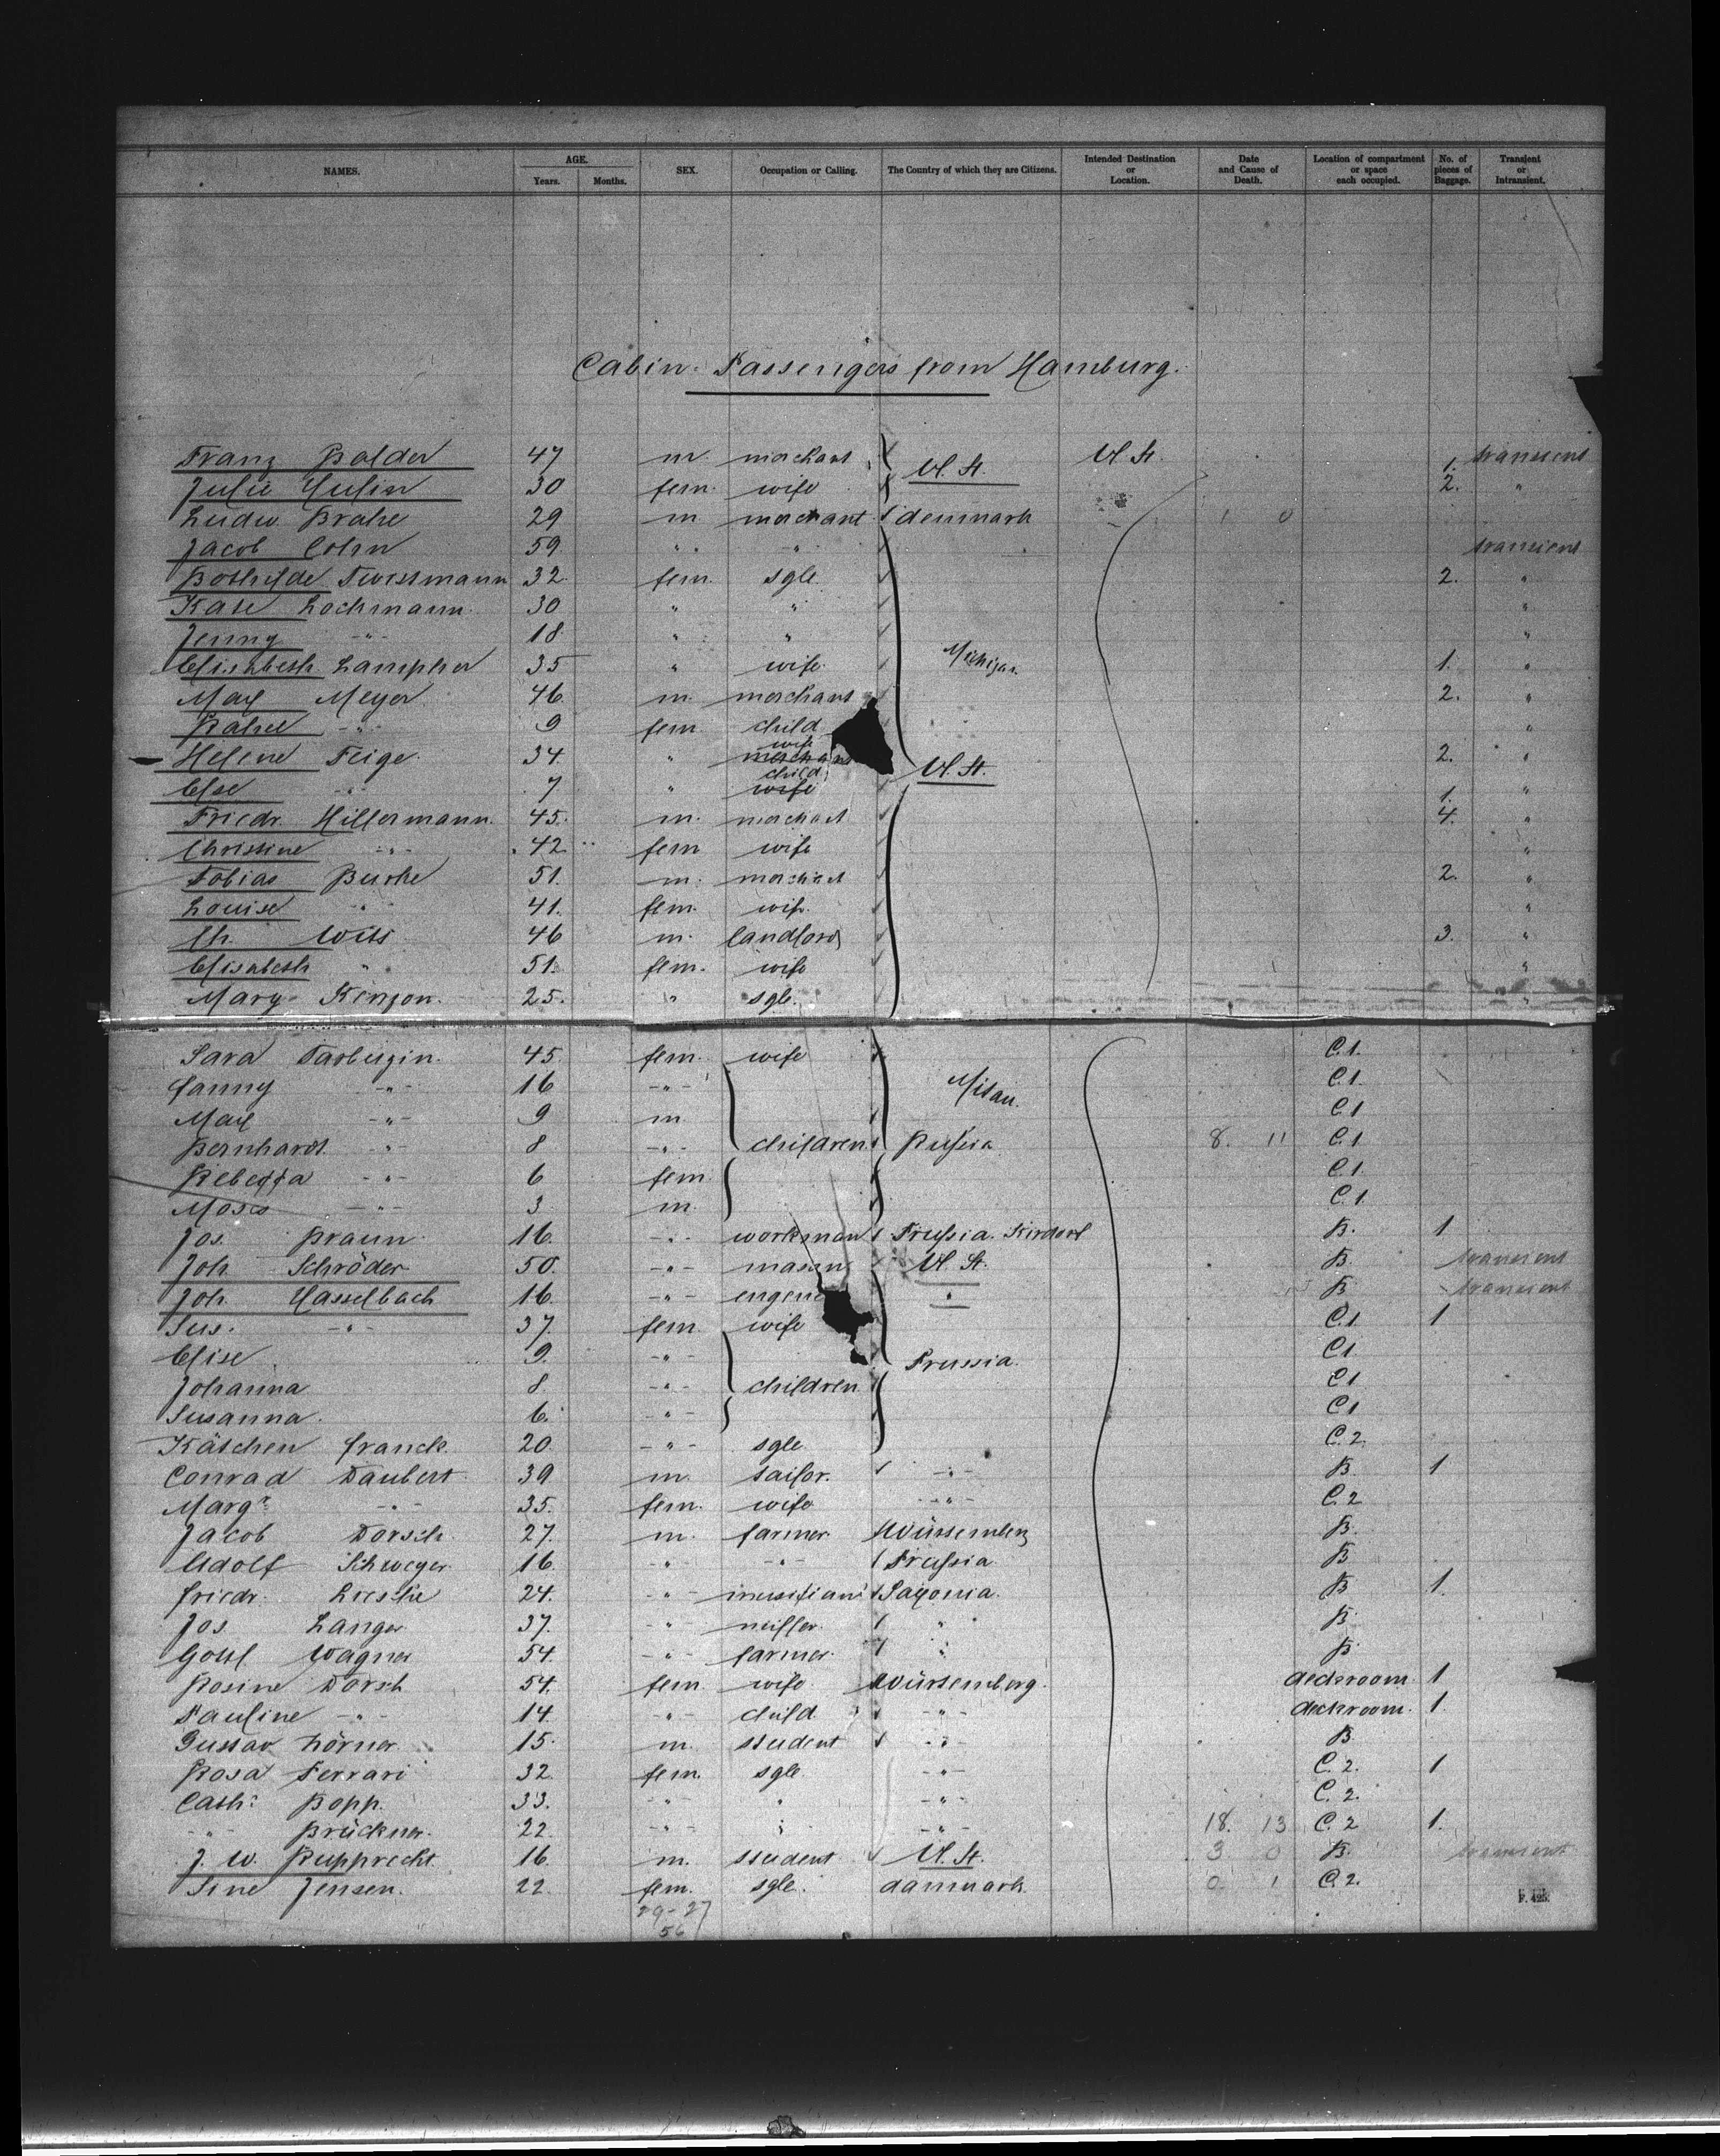 NAMES. AGE. Years. Months. SEX. Occupation or Calling. The Country of which they are Citizens. Intended Destination or Location. Date and Cause of Death. Location of compartment or space each occupied. No. of pieces of Baggage. Transient or Intransient.
Cabin-Passengers from Hamburg.
Franz Balder 47 m. merchant U. St. U. St. 1. transient
Julie 30 fem. wife 2. "
Ludw. Brahe 29 m merchant denmark 1 0
Jacob Cohn 59. " " - " - transient
Bothilde 32. fem. sgle 2. "
Kate Lochmann 30 " " "
Jenny - " - 18. " " "
Elisabeth 35 " wife Michigan 1. "
Max Meyer 46. m. merchant 2. "
- " - 9 fem child "
Helene Feige 34. " wife merchant 2. " U. St.
Else - " - 7 " child wife 1. "
Friedr. Hillermann 45. m. merchant 4. "
Christine - " - 42 fem wife "
Tobias Burke 51. m. merchant 2. "
Louise " 41. fem. wife "
Ch. Wits 46 m. landlord 3. "
Elisabeth " 51. fem. wife "
Mary 25. " sgle. "
Sara 45. fem. wife C.1.
Fanny - " - 16 - " - Mitau. C.1.
Max - " - 9 m. C.1
Bernhardt - " - 8 - " - children Rußia 8. 11 C.1
Rebecca - " - 6 fem. C.1.
Moses - " - 3 m. C.1.
Jos. Braun 16. - " - workman Prußia. Kirdorf B. 1
Joh. Schröder 50. - " - mason U. St. B. transient
Joh. Hasselbach 16. - " - engene " B transient
Sus. - " - 37. fem. wife C.1. 1
Elise 9. - " - Prussia. C1
Johanna 8. - " - children C1
Susanna. 6. - " - C1
Kätchen Franck. 20. - " - sgle C.2.
Conrad Daubert 39 m. sailor. - " - B. 1
Margr. - " - 35. fem. wife - " - C.2
Jacob Dorsch. 27. m. farmer Würtemberg B.
Adolf Schweyer 16. - " - - " - Prußia B
Friedr. 24. - " - musician Saxonia. B 1.
Jos. Langer 37. - " - miller " B.
Gottl Wagner 54. - " - farmer " B
Rosine Dorsch 54. fem. wife Würtemberg. deckroom. 1
Pauline - " - 14. - " - child. - " - deckroom. 1.
Gustav Lörner 15. m. student - " - B
Rosa Ferrari 32. fem. sgle - " - C.2. 1
Cath: Bopp. 33. - " - " - " - C.2.
- " - Brückner. 22. - " - " - " - 18. 13 C.2 1.
J. W. Rupprecht. 16. m. student U. St. 3 0 B. transient
Sine Jensen. 22. fem. sgle. danmark 0 1 C.2.
29-27
56